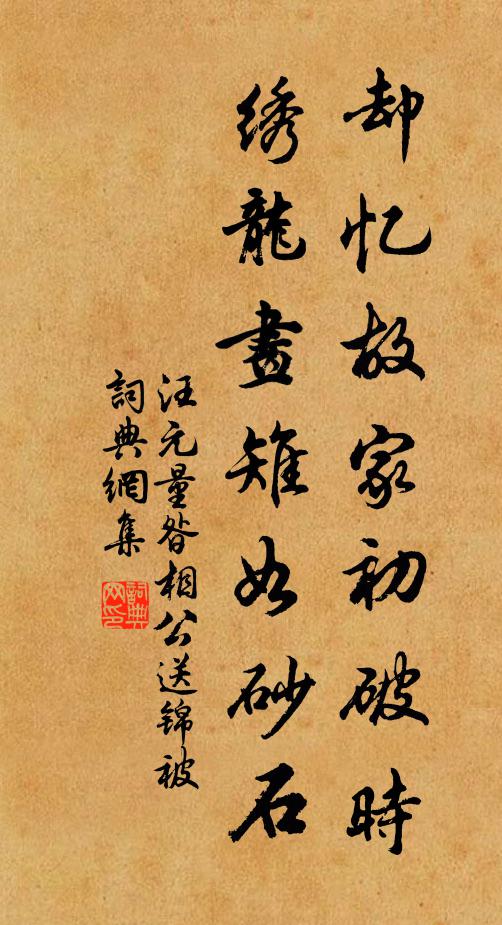 却忆故家初破時
绣龍畫雉如砂石
汪元量昝相公送锦被
詞典網集
詞典网印